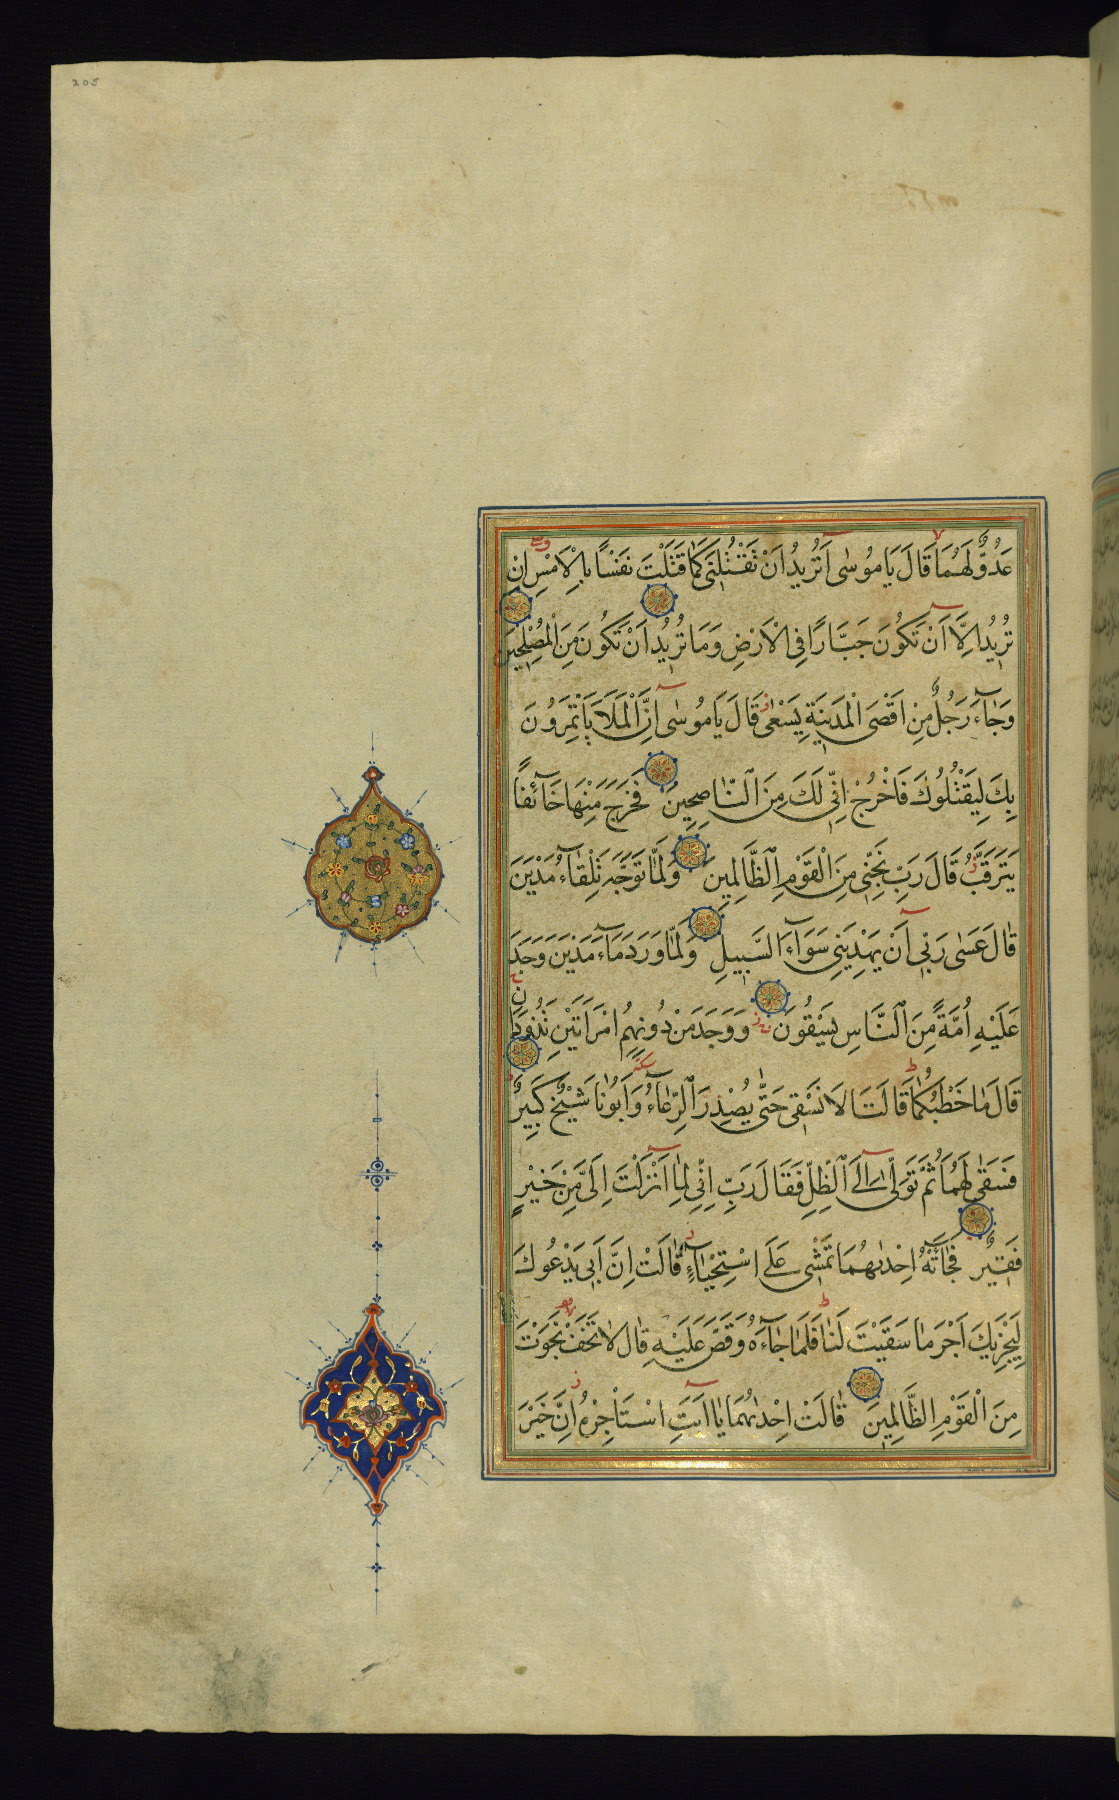 205
عَدُوٌّ لَهُمَا قَالَ يَا مُوسٰى اَتُرِيدُ اَنْ تَقْتُلَنِى كَمَا قَتَلْتَ نَفْسًا بِالْاَمْسِ اِنْ
تُرِيدُ اِلَّا اَنْ تَكُونَ جَبَّارًا فِى الْاَرْضِ وَمَا تُرِيدُ اَنْ تَكُونَ مِنَ الْمُصْلِحِينَ
وَجَاءَ رَجُلٌ مِنْ اَقْصَى الْمَدِينَةِ يَسْعٰى قَالَ يَا مُوسٰى اِنَّ الْمَلَاَ يَاْتَمِرُونَ
بِكَ لِيَقْتُلُوكَ فَاخْرُجْ اِنِّى لَكَ مِنَ النَّاصِحِينَ فَخَرَجَ مِنْهَا خَائِفًا
يَتَرَقَّبُ قَالَ رَبِّ نَجِّنِى مِنَ الْقَوْمِ الظَّالِمِينَ وَلَمَّا تَوَجَّهَ تِلْقَاءَ مَدْيَنَ
قَالَ عَسٰى رَبِّى اَنْ يَهْدِيَنِى سَوَاءَ السَّبِيلِ وَلَمَّا وَرَدَ مَاءَ مَدْيَنَ وَجَدَ
عَلَيْهِ اُمَّةً مِنَ النَّاسِ يَسْقُونَ وَوَجَدَ مِنْ دُونِهِمُ امْرَاَتَيْنِ تَذُودَانِ
قَالَ مَا خَطْبُكُمَا قَالَتَا لَا نَسْقِى حَتّٰى يُصْدِرَ الرِّعَاءُ وَاَبُونَا شَيْخٌ كَبِيرٌ
فَسَقٰى لَهُمَا ثُمَّ تَوَلّٰى اِلَى الظِّلِّ فَقَالَ رَبِّ اِنِّى لِمَا اَنْزَلْتَ اِلَىَّ مِنْ خَيْرٍ
فَقِيرٌ فَجَاءَتْهُ اِحْدٰيهُمَا تَمْشِى عَلَى اسْتِحْيَاءٍ قَالَتْ اِنَّ اَبِى يَدْعُوكَ
لِيَجْزِيَكَ اَجْرَ مَا سَقَيْتَ لَنَا فَلَمَّا جَاءَهُ وَقَصَّ عَلَيْهِ قَالَ لَا تَخَفْ نَجَوْتَ
مِنَ الْقَوْمِ الظَّالِمِينَ قَالَتْ اِحْدٰيهُمَا يَا اَبَتِ اسْتَاْجِرْهُ اِنَّ خَيْرَ